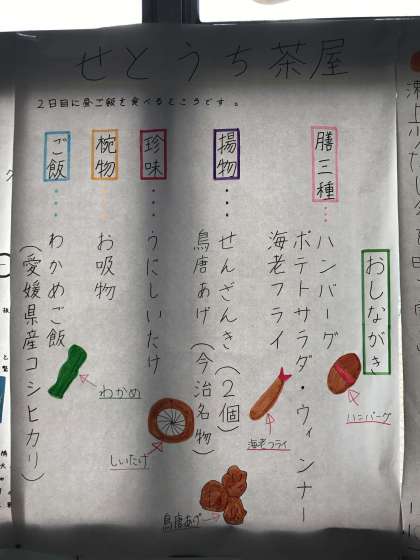 せとうち茶屋
2日目に昼ご飯を食べるところです。
おしながき
膳三種…ハンバーグ
ポテトサラダ・ウィンナー
海老フライ
揚物…せんざんき(2個)
鳥唐あげ(今治名物)
珍味…うにしいたけ
椀物…お吸物
ご飯…わかめご飯
(愛媛県産コシヒカリ)
ハンバーグ
海老フライ
鳥唐あげ
しいたけ
わかめ